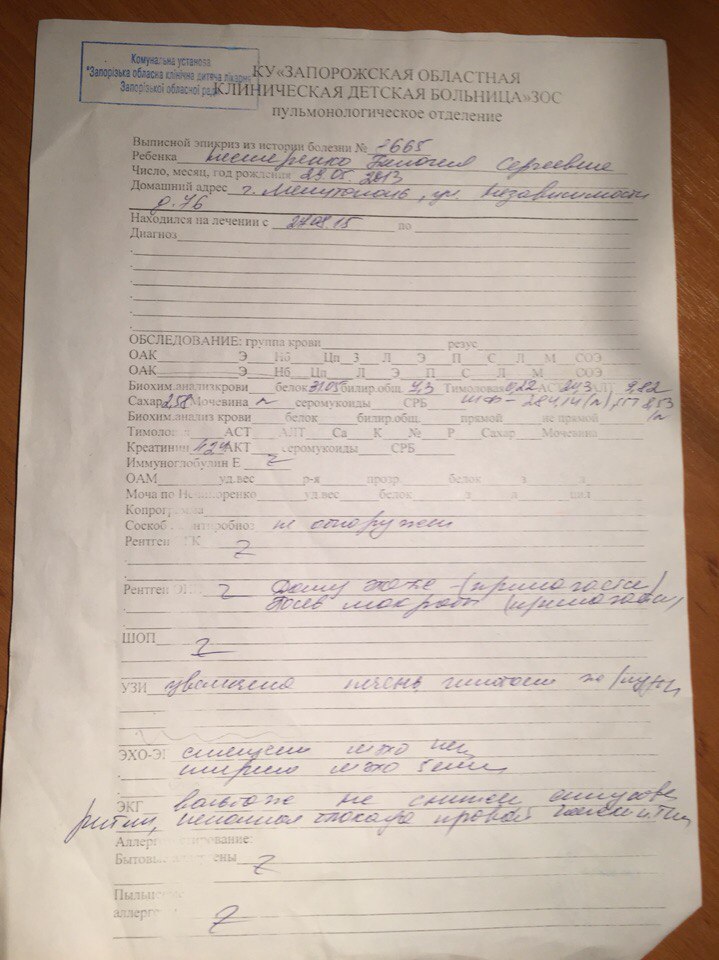 Комунальна установа
"Запорізька обласна клінічна дитяча лікарня"
Запорізької обласної ради
КУ«ЗАПОРОЖСКАЯ ОБЛАСТНАЯ
КЛИНИЧЕСКАЯ ДЕТСКАЯ БОЛЬНИЦА»ЗОС
пульмонологическое отделение
Выписной эпикриз из истории болезни № 7665
Ребенка Нестеренко Сергеевне
Число, месяц, год рождения 29.05.2013
Домашний адрес г. Мелитополь, ул. Независимости
д.76
Находился на лечении с 27.08.15 по
Диагноз
ОБСЛЕДОВАНИЕ: группа крови резус
ОАК Э Нб Цп З Л Э П С Л М СОЭ
ОАК Э Нб Цп Л Э П С Л М СОЭ
Биохим.анализ крови белок билир.общ. 9,3 Тимоловая 0,22 АСТ 24,3 АЛТ 9,82
Сахар 2,58 Мочевина N серомукоиды СРБ
Биохим.анализ крови белок билир.общ. прямой не прямой
Тимолов АСТ АЛТ Са К № Р Сахар Мочевина
Креатинин АКТ серомукоиды СРБ
Иммуноглобулин Е
ОАМ уд.вес р-я прозр. белок э л
Моча по Нечипоренко уд вес белок э л цил
Копрограмма
Соскоб энтеробиоз не обнаружен
Рентген ГК
Рентген (прилагается)
Посев мокроты (прилагается)
ШОП
УЗИ увеличена печень
ЭХО-ЭГ смещения М-эхо нет
ширина М-эхо 5 мм
ЭКГ вольтаж не снижен синусов
ритм, неполная блокада правой ножки п. Гиса
Аллерготестирование:
Бытовые аллергены
Пыльцевые
аллерг